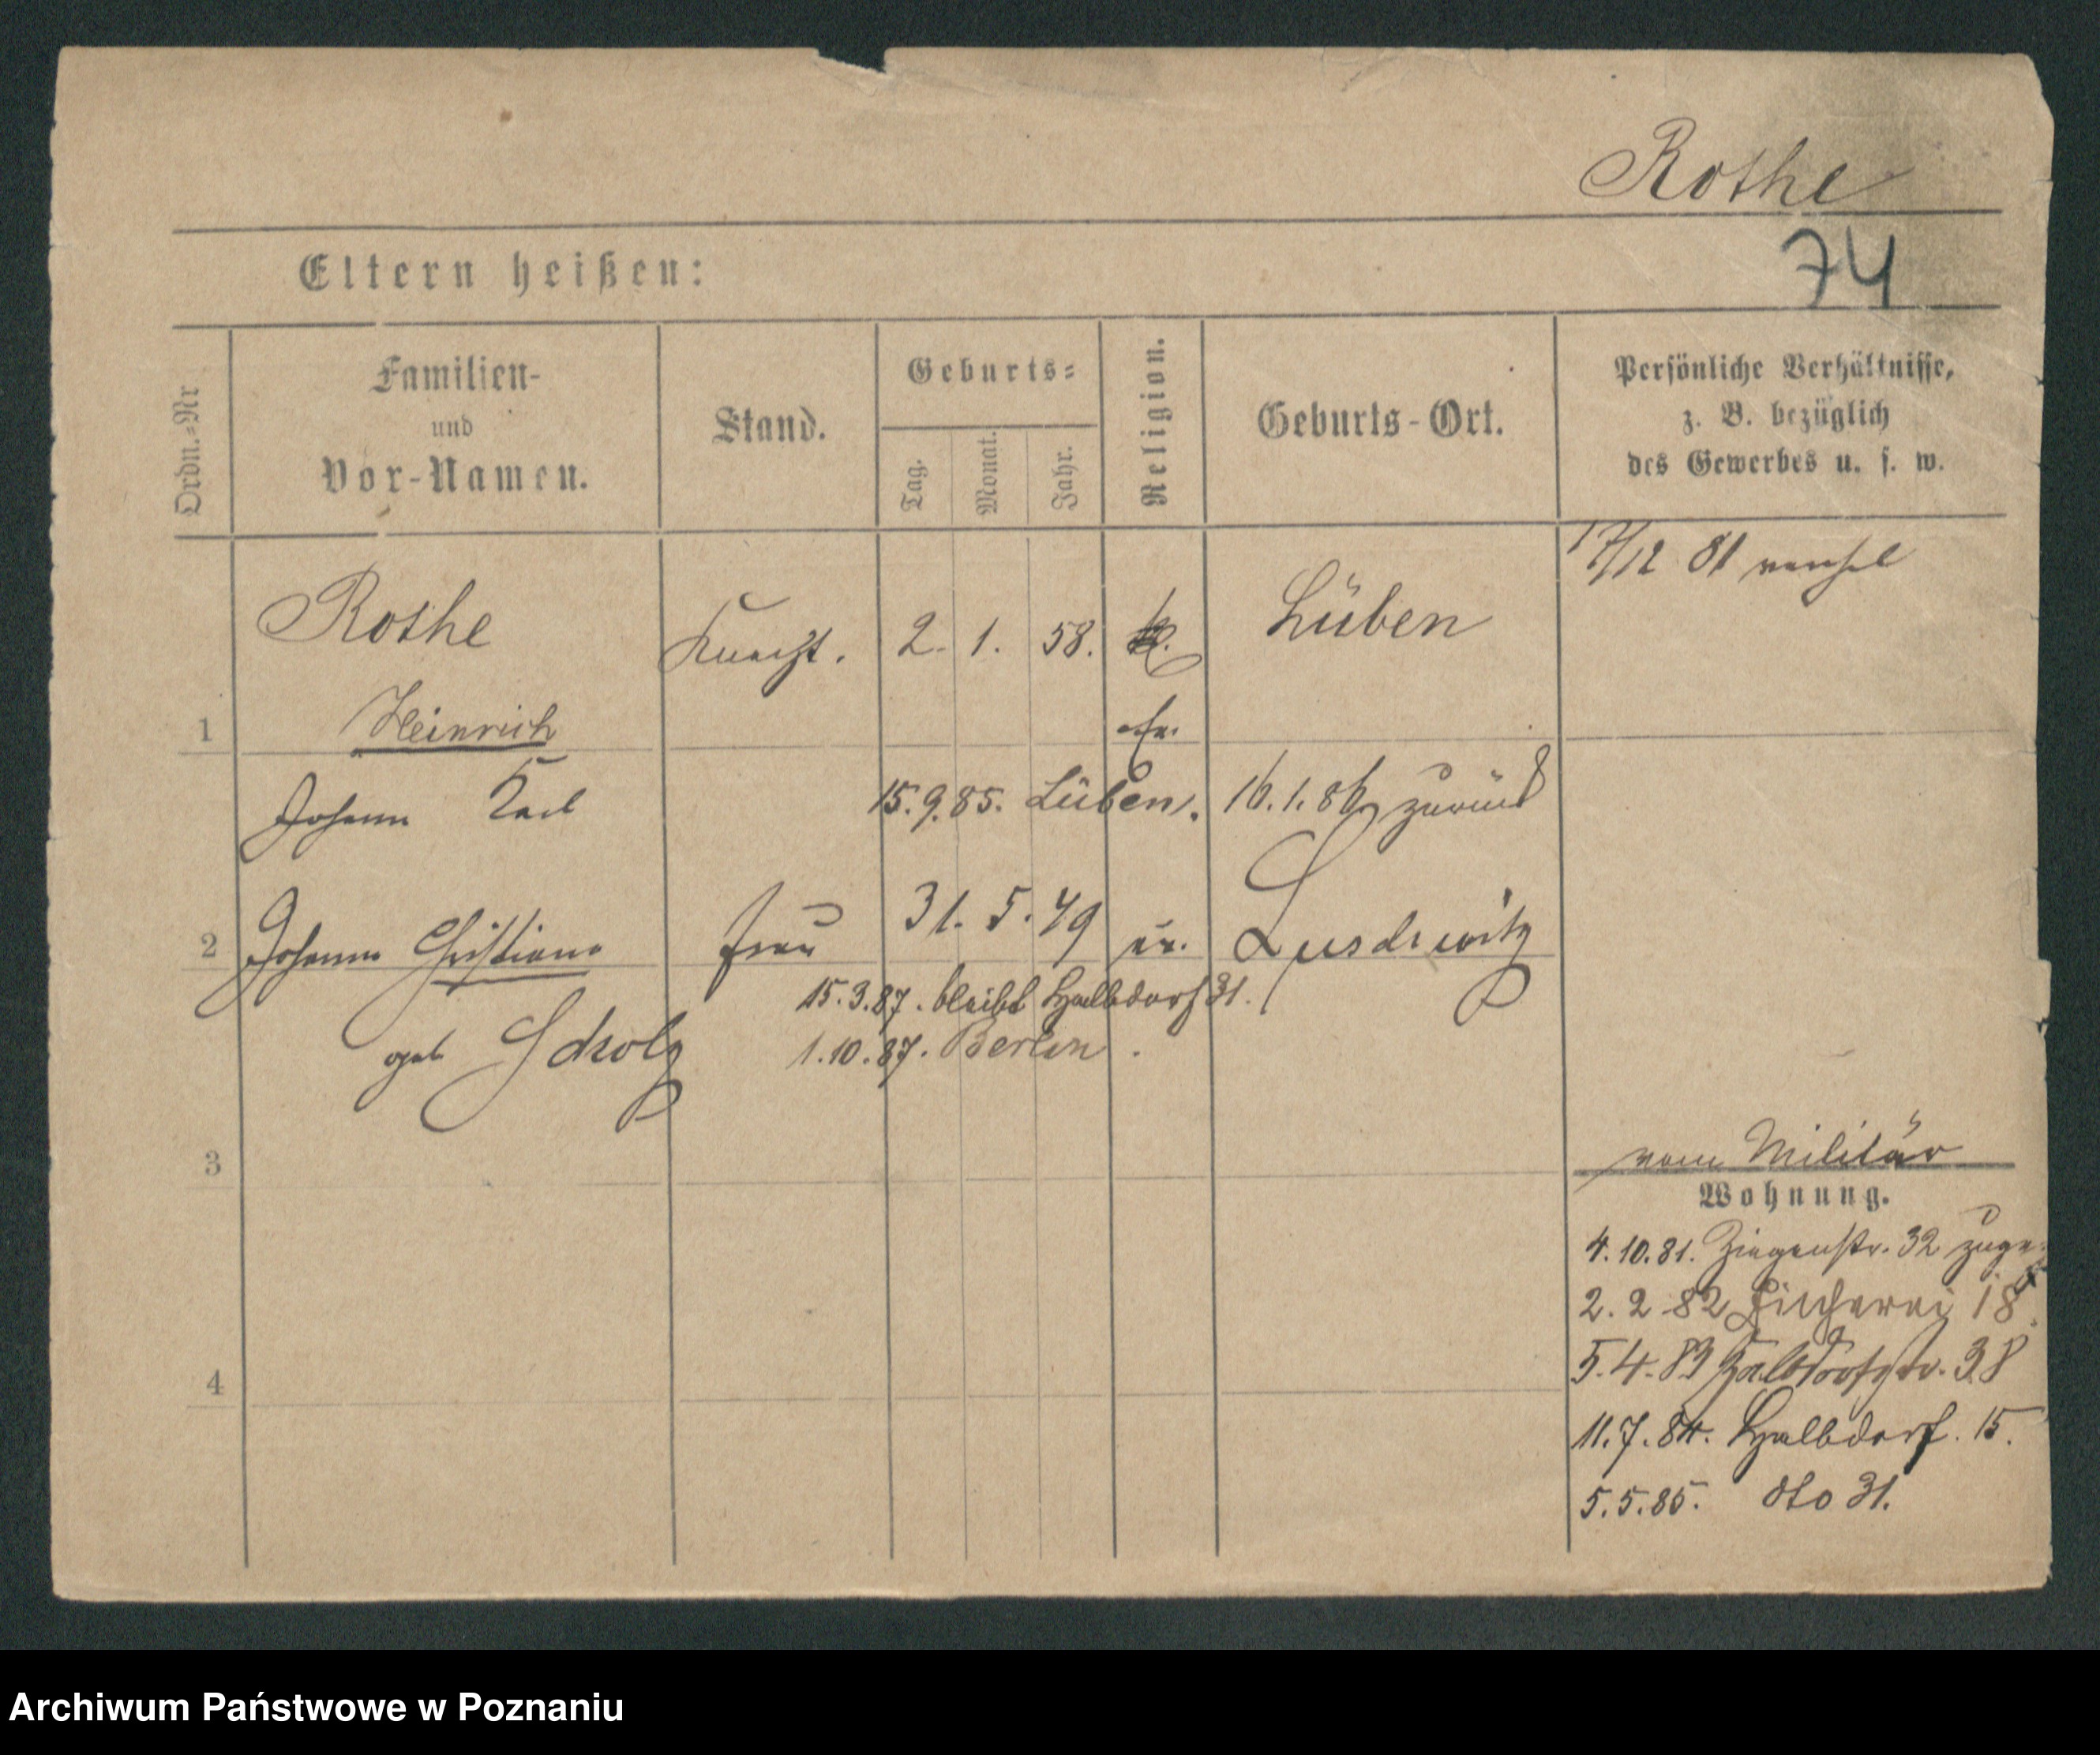 Rothe
74
Eltern heißen:
Ordn.-Nr
Familien-
und
Vor-Namen.
Stand.
Geburts-
Tag.
Monat.
Jahr.
Religion.
Geburts-Ort.
Persönliche Verhältnisse,
z. B. bezüglich
des Gewerbes u. s. w.
17/12 81
Rothe
Knecht.
2. 1. 58.
Lüben
1
Heinrich
ev.
Johann Karl
15.9.85. Lüben.
16.1.86 zurück
2
Johanna Christiane
Frau
31. 5. 49
ev.
15.3.87. bleibt Halbdorf 31.
geb Scholz
1.10.87. Berlin.
3
vom Militär
Wohnung.
4.10.81. Ziegenstr. 32
2. 2 82 Fischerei 18
5.4.83 Halbdorfstr. 38
4
11.7.84. Halbdorf. 15.
5.5.85. dto 31.
Archiwum Państwowe w Poznaniu